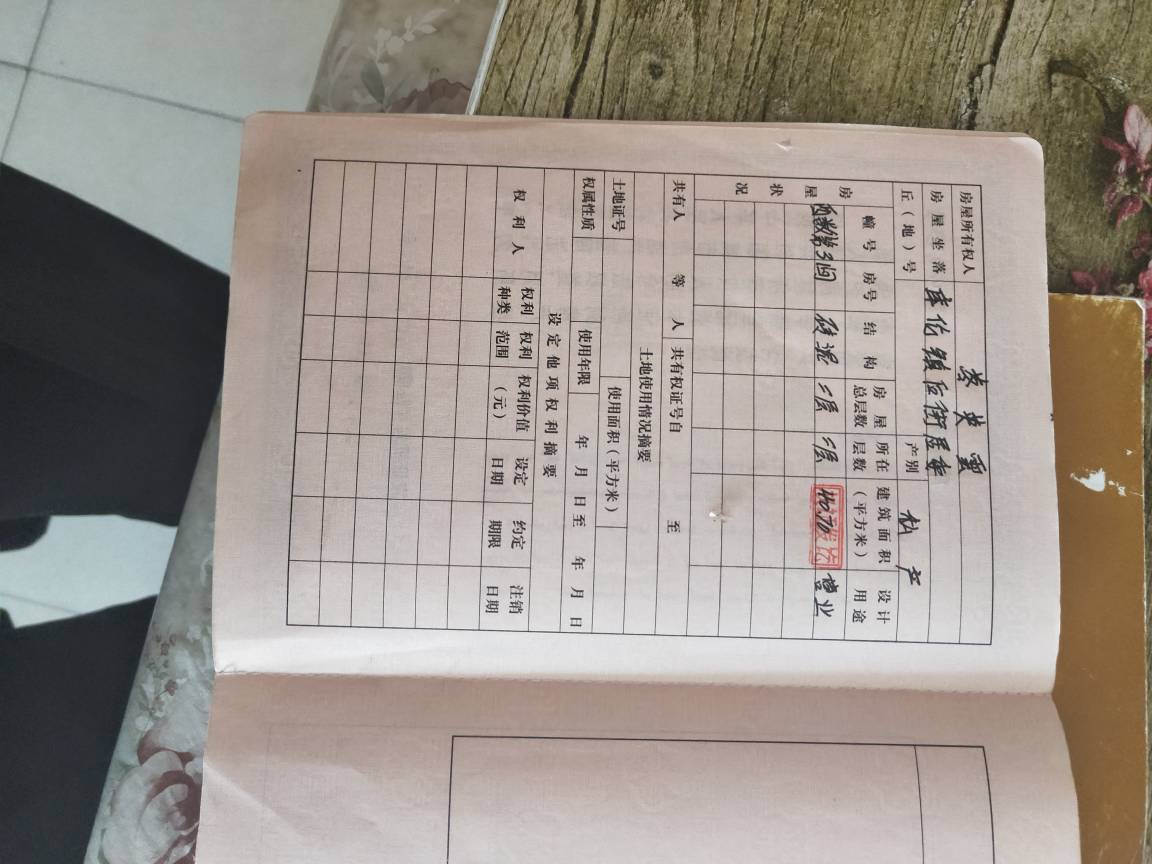 房屋所有权人
房屋坐落 镇后街居委
丘（地）号 产别 私产
房屋状况
幢号 房号 结构 房屋总层数 所在层数 建筑面积（平方米） 设计用途
砖混 二层 二层 营业
共有人 等 人 共有权证号自 至
土地使用情况摘要
土地证号 使用面积（平方米）
权属性质 使用年限 年 月 日至 年 月 日
设定他项权利摘要
权利人 权利种类 权利范围 权利价值（元） 设定日期 约定期限 注销日期